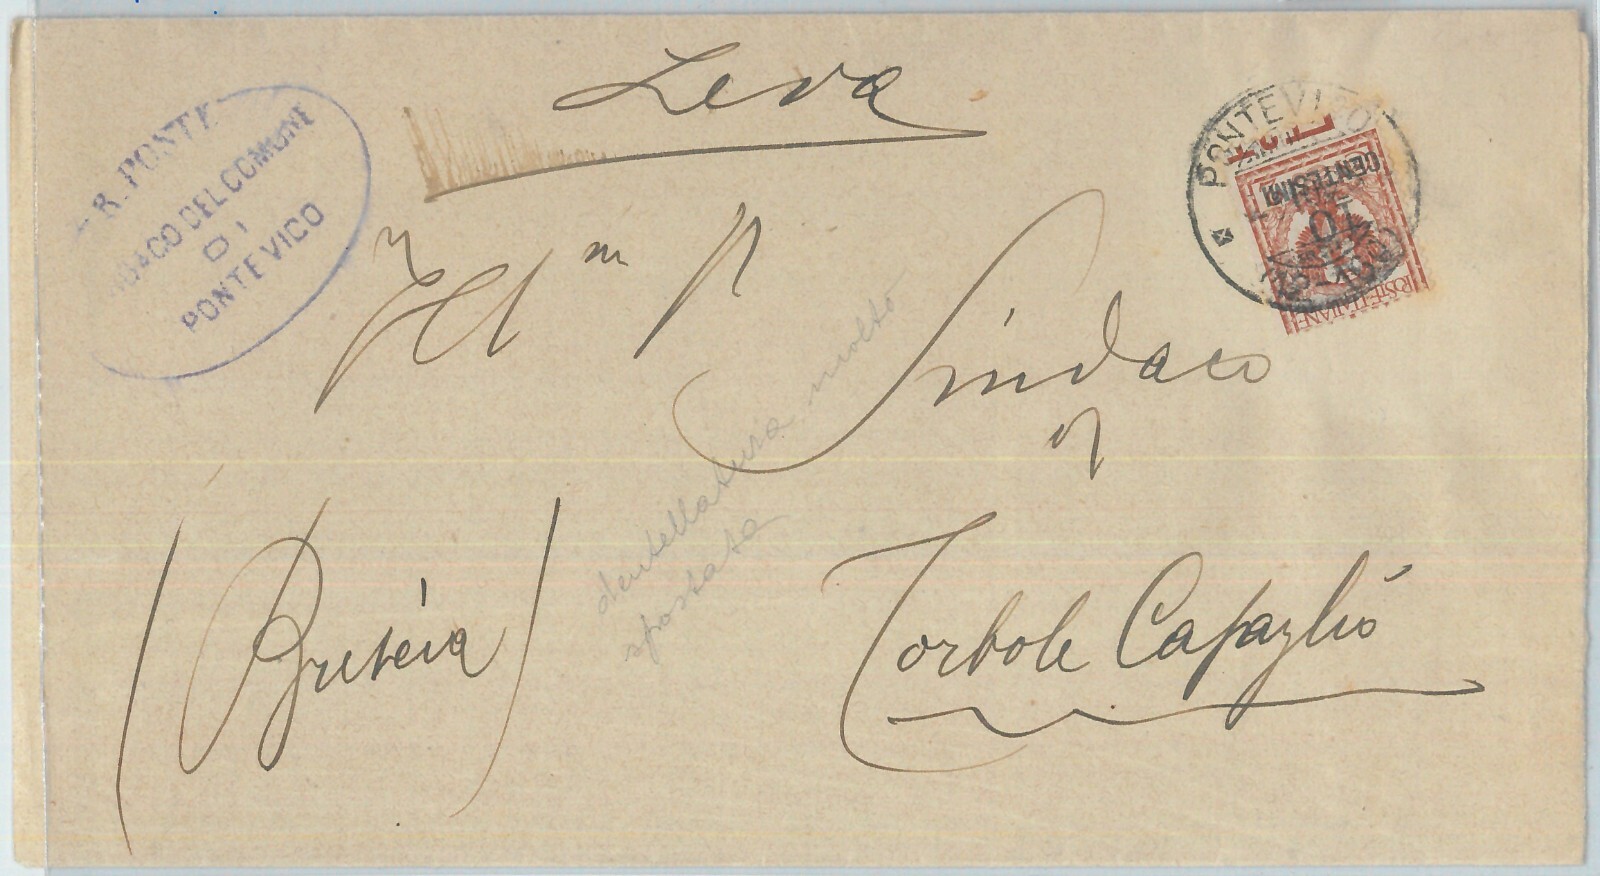 Leva
R. POSTE
SINDACO DEL COMUNE
DI
PONTEVICO
PONTEVICO
CENTESIMI
POSTE ITALIANE
Ill^m^ S^r^ Sindaco
di
Torbole Casaglio
(Brescia)
dentellatura molto
spostata